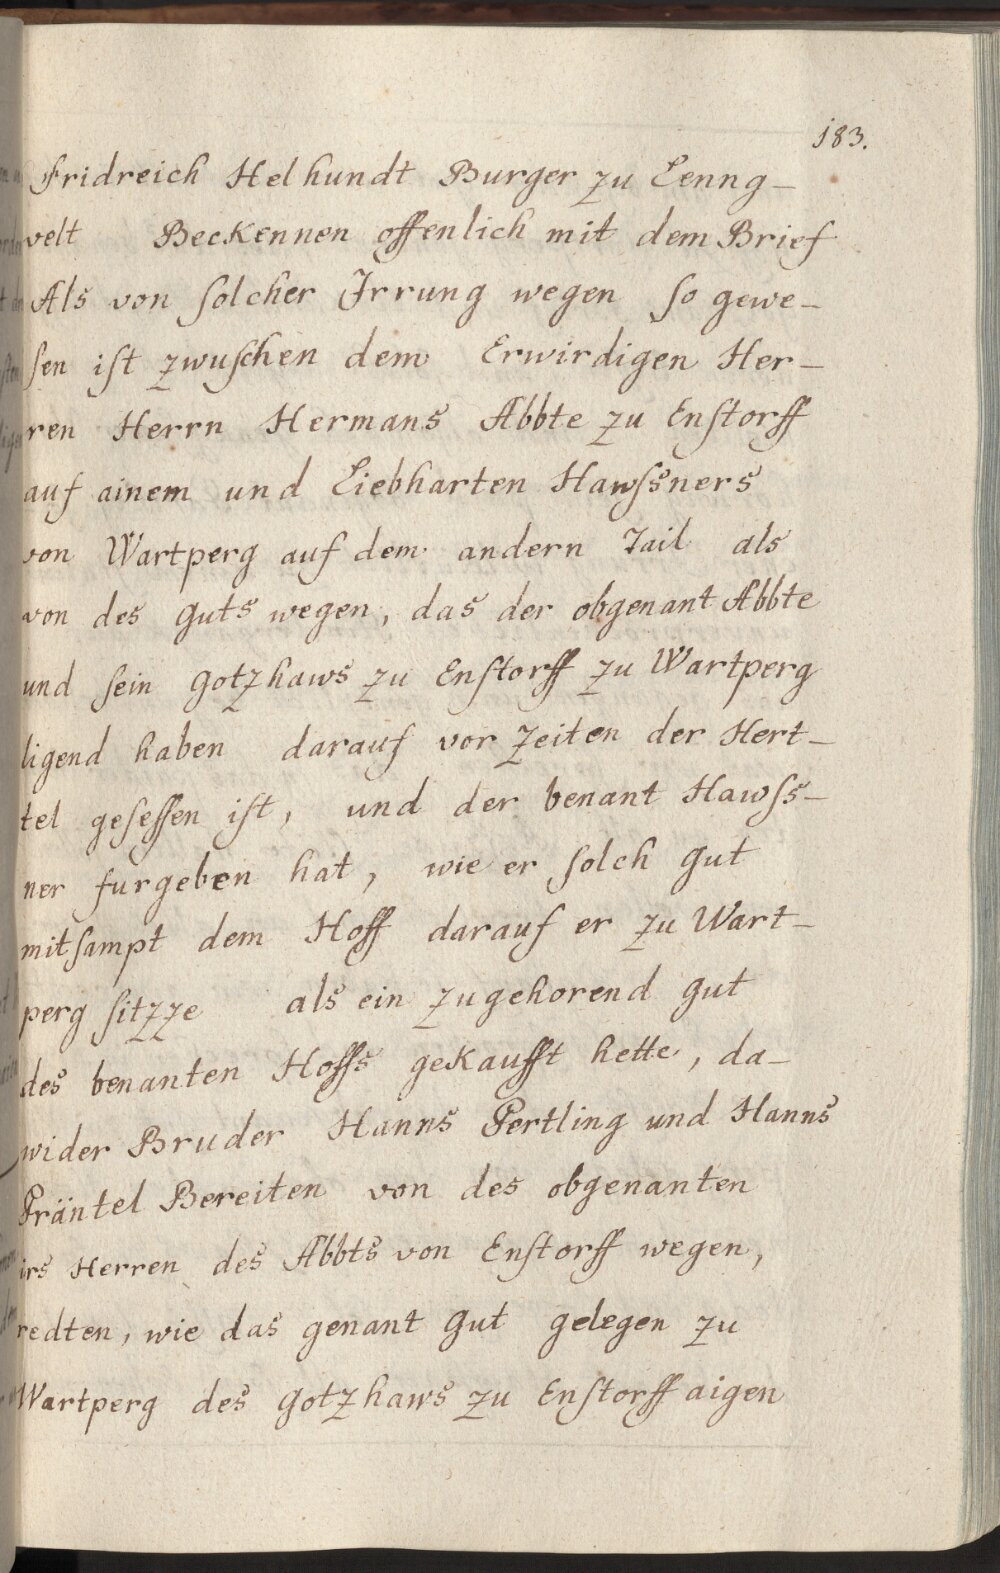 183.
Fridreich Helhundt Burger zu Lenng-
velt Beckennen offenlich mit dem Brief
Als von solcher Irrung wegen so gewe-
sen ist zwuschen dem Erwirdigen Her-
ren Herrn Hermans Abbte zu Enstorff
auf ainem und Liebharten Hawssners
von Wartperg auf dem andern Tail als
von des guts wegen, das der obgenant Abbte
und sein gotzhaws zu Enstorff zu Wartperg
ligend haben darauf vor Zeiten der Hert-
tel gesessen ist, und der benant Hawss-
ner furgeben hat, wie er solch gut
mitsampt dem Hoff darauf er zu Wart-
perg sitzze als ein zugehorend gut
des benanten Hoffs gekaufft hette, da-
wider Bruder Hanns Pertling und Hanns
Präntel Bereiten von des obgenanten
irs Herren des Abbts von Enstorff wegen,
redten, wie das genant gut gelegen zu
Wartperg des gotzhaws zu Enstorff aigen